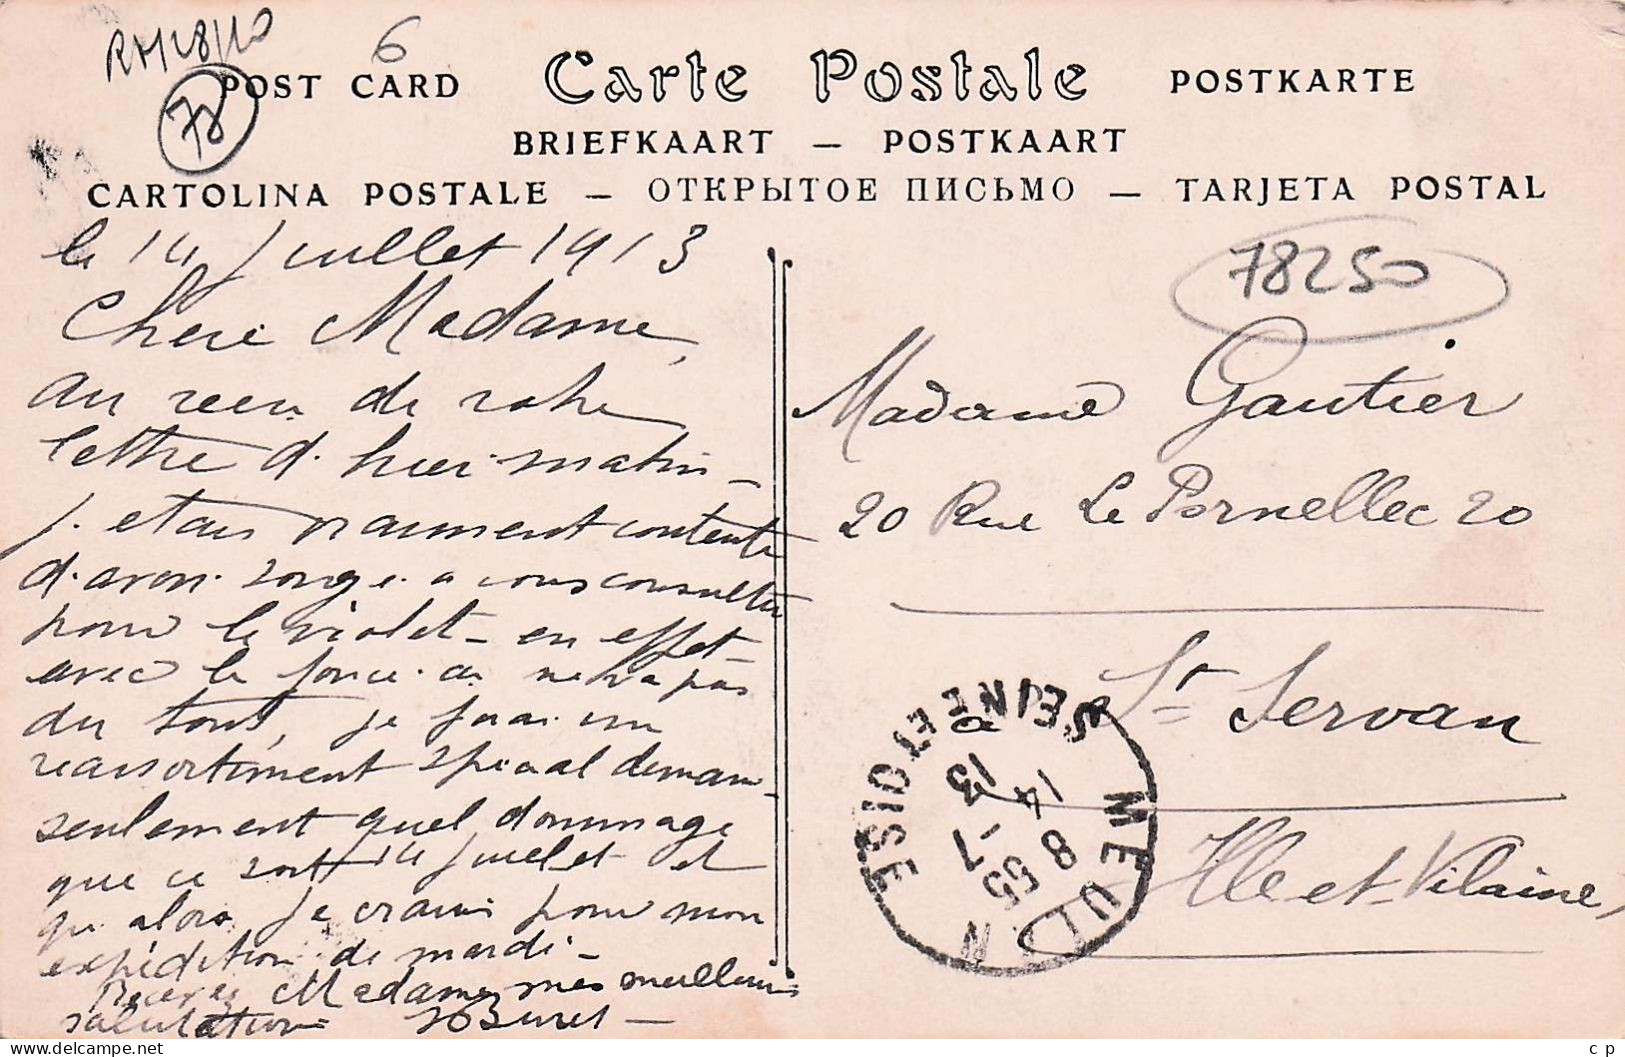 RM/28/10
6
78
POST CARD Carte Postale POSTKARTE
BRIEFKAART — POSTKAART
CARTOLINA POSTALE — ОТКРЫТОЕ ПИСЬМО — TARJETA POSTAL
le 14 Juillet 1913
Chère Madame,
au recu de votre
lettre d'hier matin -
j'etais vraiment contente
d'avoir songé a vous consulter
pour le violet - en effet -
avec le foncé ca ne va pas
du tout, je ferai un
reassortiment special demain -
seulement quel dommage
que ce soit 14 Juillet et
qu'alors je crains pour mon
expédition de mardi -
Recevez Madame mes meilleures
salutations
78250
Madame Gautier
20 Rue Le Pornellec 20
St Servan
Ille et Vilaine
MEULAN
SEINE ET OISE
8 55
14 - 7
13
c p